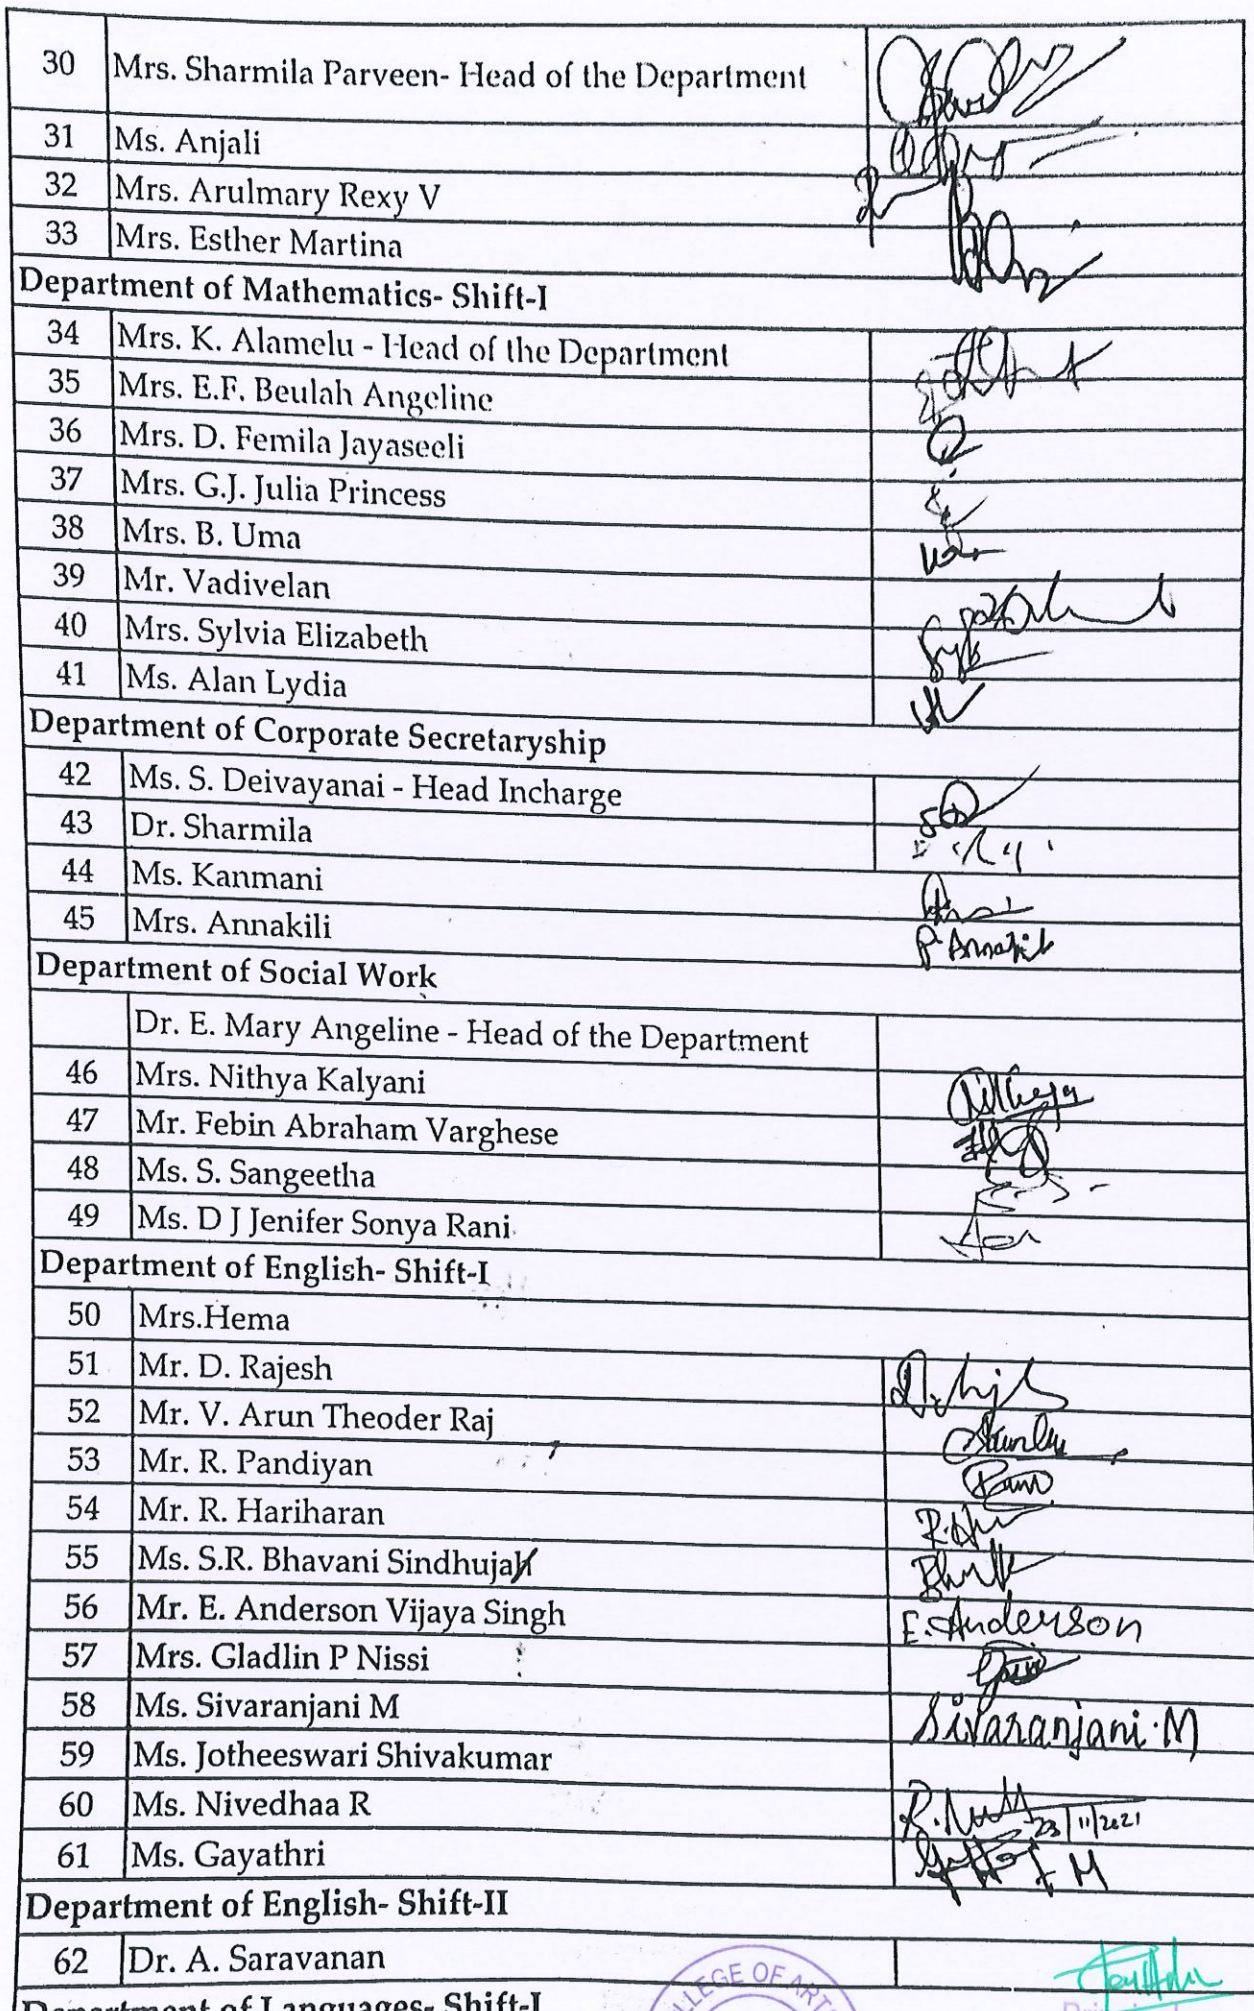 30 Mrs. Sharmila Parveen- Head of the Department
31 Ms. Anjali
32 Mrs. Arulmary Rexy V
33 Mrs. Esther Martina
Department of Mathematics- Shift-I
34 Mrs. K. Alamelu - Head of the Department
35 Mrs. E.F. Beulah Angeline
36 Mrs. D. Femila Jayaseeli
37 Mrs. G.J. Julia Princess
38 Mrs. B. Uma
39 Mr. Vadivelan
40 Mrs. Sylvia Elizabeth
41 Ms. Alan Lydia
Department of Corporate Secretaryship
42 Ms. S. Deivayanai - Head Incharge
43 Dr. Sharmila
44 Ms. Kanmani
45 Mrs. Annakili
Department of Social Work
Dr. E. Mary Angeline - Head of the Department
46 Mrs. Nithya Kalyani
47 Mr. Febin Abraham Varghese
48 Ms. S. Sangeetha
49 Ms. D J Jenifer Sonya Rani
Department of English- Shift-I
50 Mrs.Hema
51 Mr. D. Rajesh
52 Mr. V. Arun Theoder Raj
53 Mr. R. Pandiyan
54 Mr. R. Hariharan
55 Ms. S.R. Bhavani Sindhujah
56 Mr. E. Anderson Vijaya Singh E. Anderson
57 Mrs. Gladlin P Nissi
58 Ms. Sivaranjani M Sivaranjani.M
59 Ms. Jotheeswari Shivakumar
60 Ms. Nivedhaa R 23/11/2021
61 Ms. Gayathri
Department of English- Shift-II
62 Dr. A. Saravanan
Department of Languages- Shift-I